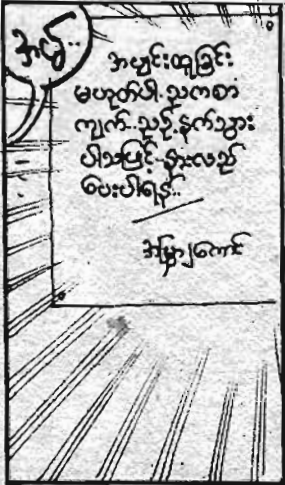 အယ်..
အပျင်းထူခြင်း
မဟုတ်ပါ..ညကစာ
ကျက်..ညဉ့်နက်သွား
ပါသဖြင့်..နားလည်
ပေးပါရန်..
အမြှာကောင်